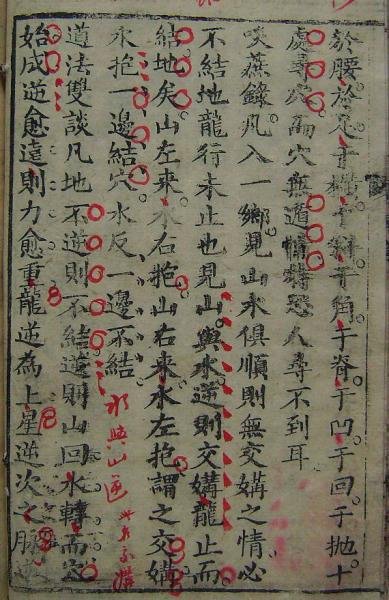 於腰於足于横于斜于角于脊于凹于回于抛十
處尋穴而穴無遁情特恐人尋不到耳
啖蔗錄凡入一鄉見山水俱順則無交媾之情必
不結地龍行未止也見山與水逆則交媾龍止而
結地矣山左來水右抱山右來水左抱謂之交媾
水抱一邊結穴水反一邊不結
水與山逆
道法雙談凡地不逆則不結逆則山回水轉而穴
始成逆愈遠則力愈重龍逆為上星逆次之脉